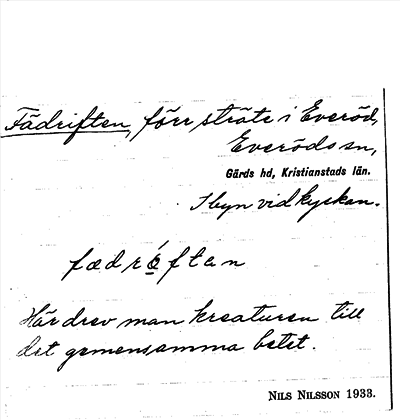 Fädriften, förr sträte i Everöd,
Everöds sn,
Gärds hd, Kristianstads län.
I byn vid kyrkan.
fædrǿftan
Här drev man kreaturen till
det gemensamma betet.
NILS NILSSON 1933.